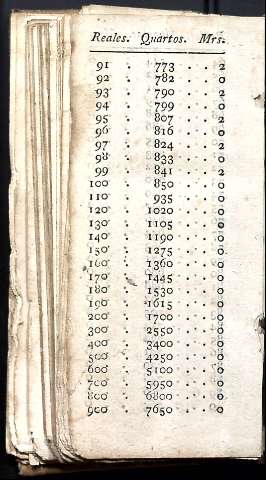 Reales. Quartos. Mrs.
91 . 773 . . . 2
92 . 782 . . . 0
93 . 790 . . . 2
94 . 799 . . . 0
95 . 807 . . . 2
96 . 816 . . . 0
97 . 824 . . . 2
98 . 833 . . . 0
99 . 841 . . . 2
100 . 850 . . . 0
110 . 935 . . . 0
120 . 1020 . . . 0
130 . 1105 . . . 0
140 . 1190 . . . 0
150 . 1275 . . . 0
160 . 1360 . . . 0
170 . 1445 . . . 0
180 . 1530 . . . 0
190 . 1615 . . . 0
200 . 1700 . . . 0
300 . 2550 . . . 0
400 . 3400 . . . 0
500 . 4250 . . . 0
600 . 5100 . . . 0
700 . 5950 . . . 0
800 . 6800 . . . 0
900 . 7650 . . . 0